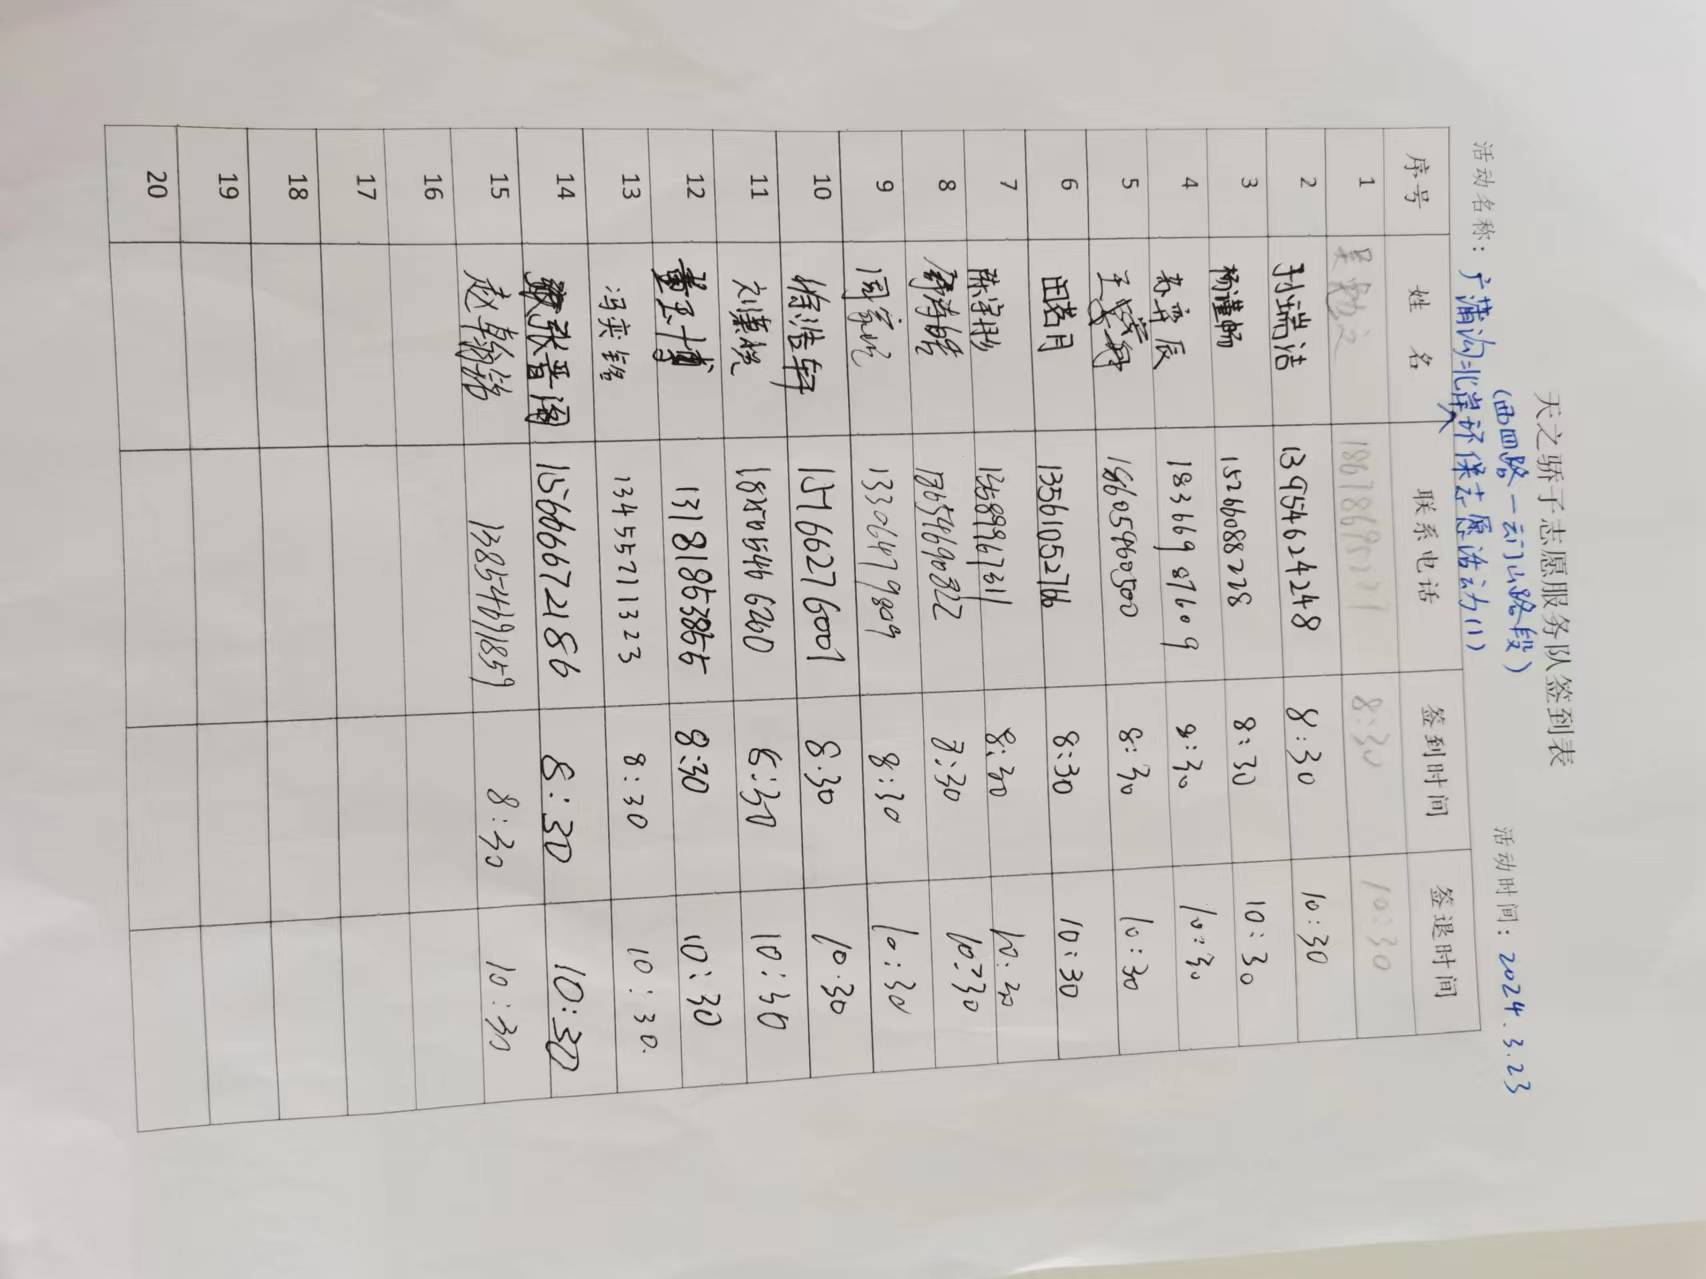 天之骄子志愿服务队签到表
(西四路—云门山路段)
活动名称：广蒲沟北岸环保志愿活动(1) 活动时间：2024.3.23
序号 姓名 联系电话 签到时间 签退时间
1 8:30 10:30
2 孙瑞洁 13954624248 8:30 10:30
3 杨谨畅 15266088278 8:30 10:30
4 18366987609 8:30 10:30
5 王 18605960500 8:30 10:30
6 田茗月 13561052766 8:30 10:30
7 8:30 10:30
8 17654690822 7:30 10:30
9 周家悦 13306479809 8:30 10:30
10 徐浩轩 15766276007 8.30 10.30
11 18. 8:30 10:30
12 董玉博 13181853865 8:30 10:30
13 冯奕铭 13455711323 8:30 10:30.
14 张晋阁 15666672186 8:30 10:30
15 赵翰铭 13854691859 8:30 10:30
16
17
18
19
20